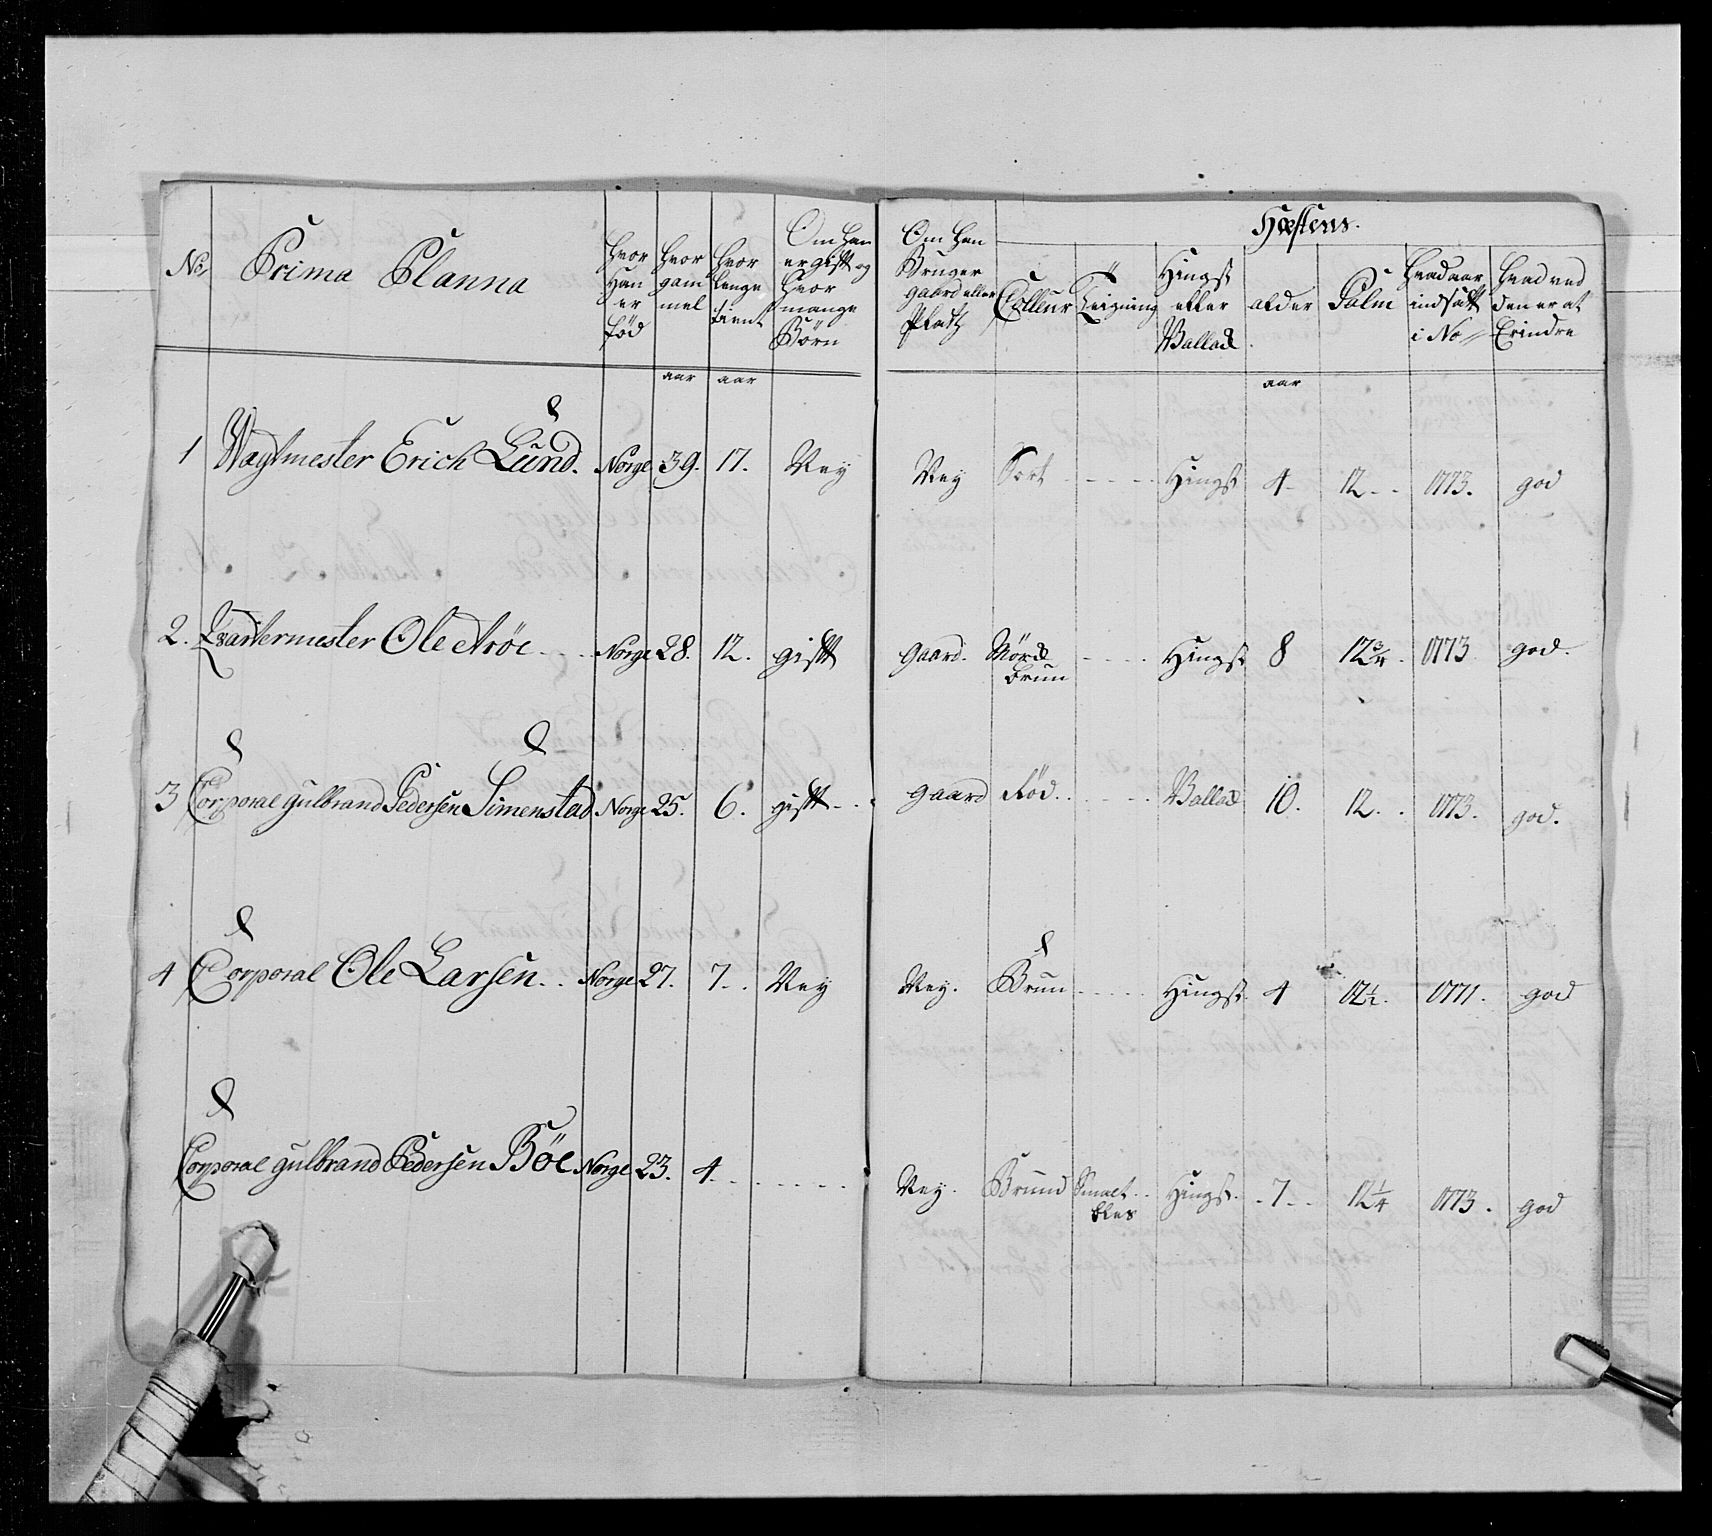 No Prima Planna
hvor Han er fød
hvor gam mel
hvor lenge tient
Om han er gift og hvor mange Børn
Om han Bruger gaard eller Platz
Hæstens.
Colleur
Teigning
Hingst eller Vallack
alder
Palm
hvad aar indsatt i No
hvad ved den er at Erindre
aar aar aar
1 Wagtmester Erich Lund. Norge 39. 17. Ney Ney Sort Hingst 4 12 1773. god
2. Qvartermester Ole Røe Norge 28. 12. gift gaard. Mørck Hingst 8 12 3/4. 1773 god.
brun
3 Corporal Gulbrand Pedersen Simenstad Norge 25. 6. gift gaard Rød Vallack 10. 12. 1773. god.
4 Corporal Ole Larsen Norge 27. 7. Ney Ney. Brun Hingst 4 12 1/2. 1771. god
Corporal Gulbrand Pedersen Böe Norge 23. 4. Ney. Bruun Smal Hingst. 7 12 1/4 1773. god
bles